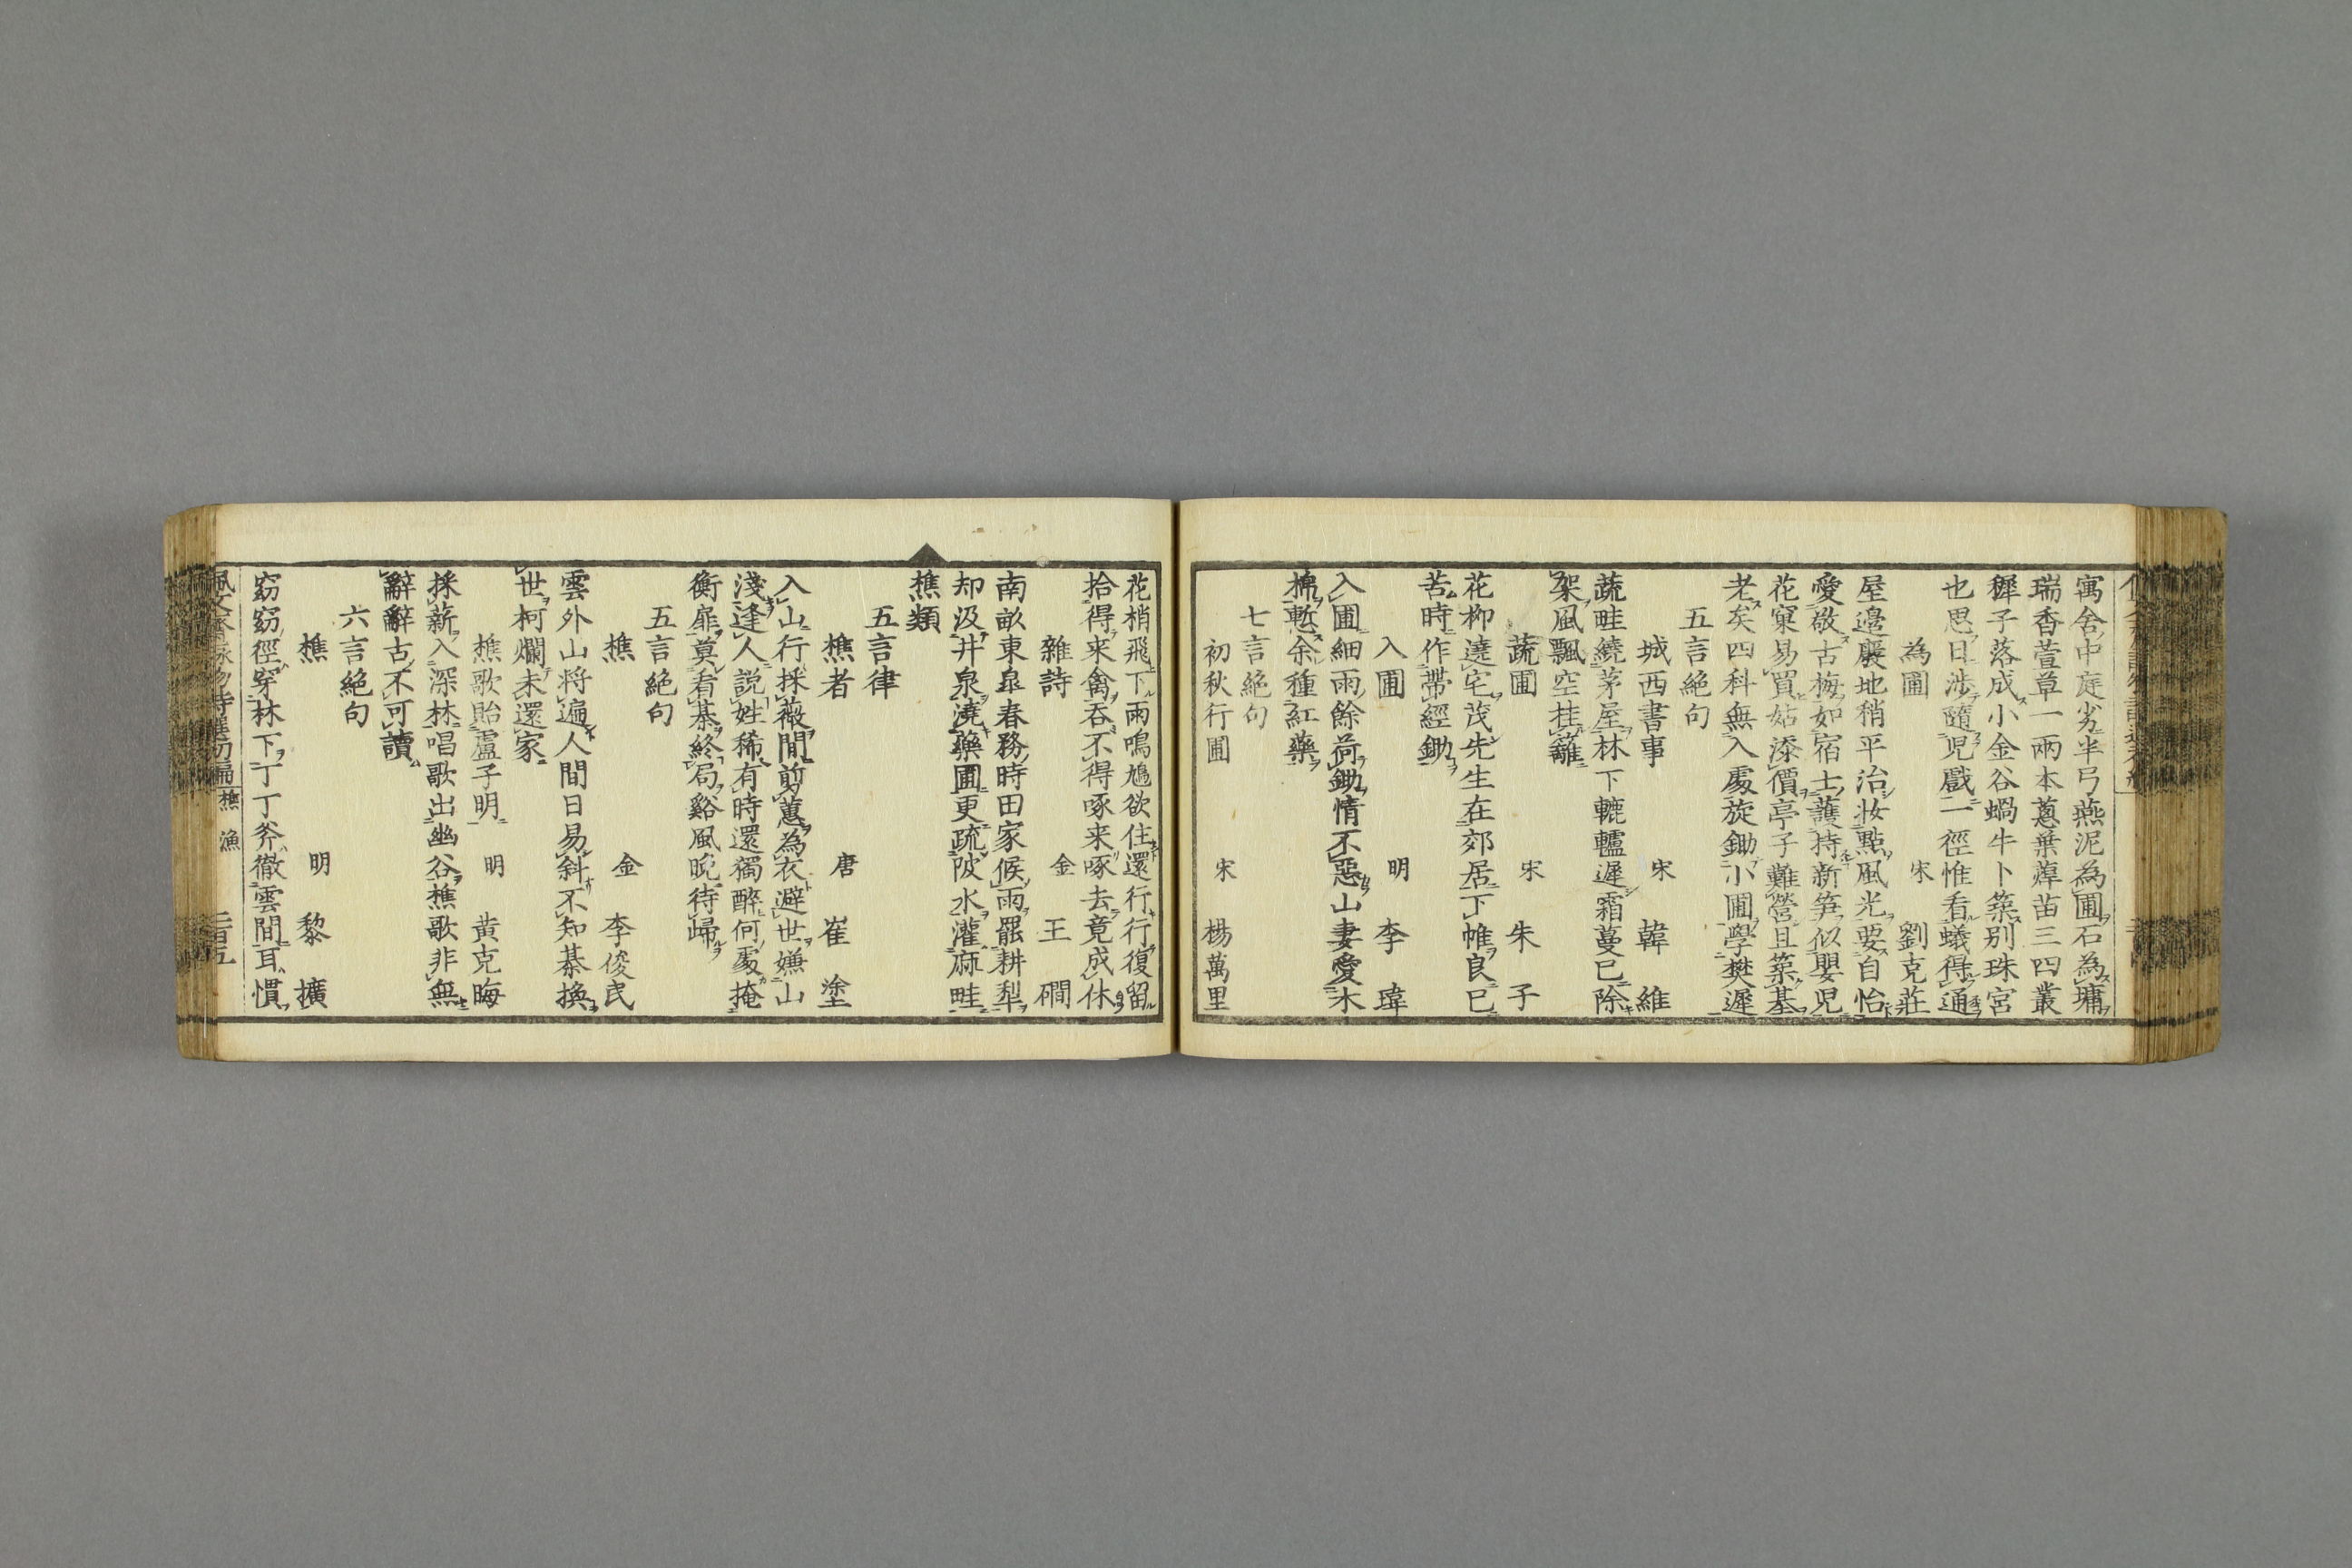 寓舍中庭劣半弓燕泥為圃石為墉
瑞香萱草一兩本蔥葉薤苗三四叢
穉子落成小金谷蝸牛卜築別珠宮
也思日涉隨兒戲一徑惟看蟻得通
為圃 宋 劉克莊
屋邉廢地稍平治妝點風光要自怡
愛敬古梅如宿士護持新笋似嬰児
花窠易買姑添價亭子難營且築基
老矣四科無入處旋鋤小圃學樊遲
五言絕句
城西書事 宋 韓維
蔬畦繞茅屋林下轆轤遲霜蔓已除
架風飄空挂籬
蔬圃 宋 朱子
花栁遶宅茂先生在郊居下帷良已
苦時作帶經鋤
入圃 明 李瑋
入圃細雨餘荷鋤情不惡山妻愛木
棉慙余種紅藥
七言絕句
初秋行圃 宋 楊萬里
花梢飛下兩鳴鳩欲住還行行復留
拾得来禽吞不得啄来啄去竟成休
雜詩 金 王磵
南畝東皐春務時田家候雨罷耕犁
却汲井泉澆藥圃更疏陂水灌麻畦
樵類
五言律
樵者 唐 崔塗
入山行採薇閒剪蕙為衣避世嫌山
淺逢人說姓稀有時還獨醉何處掩
衡扉莫看棊終局谿風晚待歸
五言絕句
樵 金 李俊民
雲外山將遍人間日易斜不知棊換
世柯爛未還家
樵歌貽盧子明 明 黃克晦
採薪入深林唱歌出幽谷樵歌非無
辭辭古不可讀
六言絕句
樵 明 黎擴
窈窈徑穿林下丁丁斧徹雲間耳慣
佩文齋詠物詩選初編 樵 漁 二百五